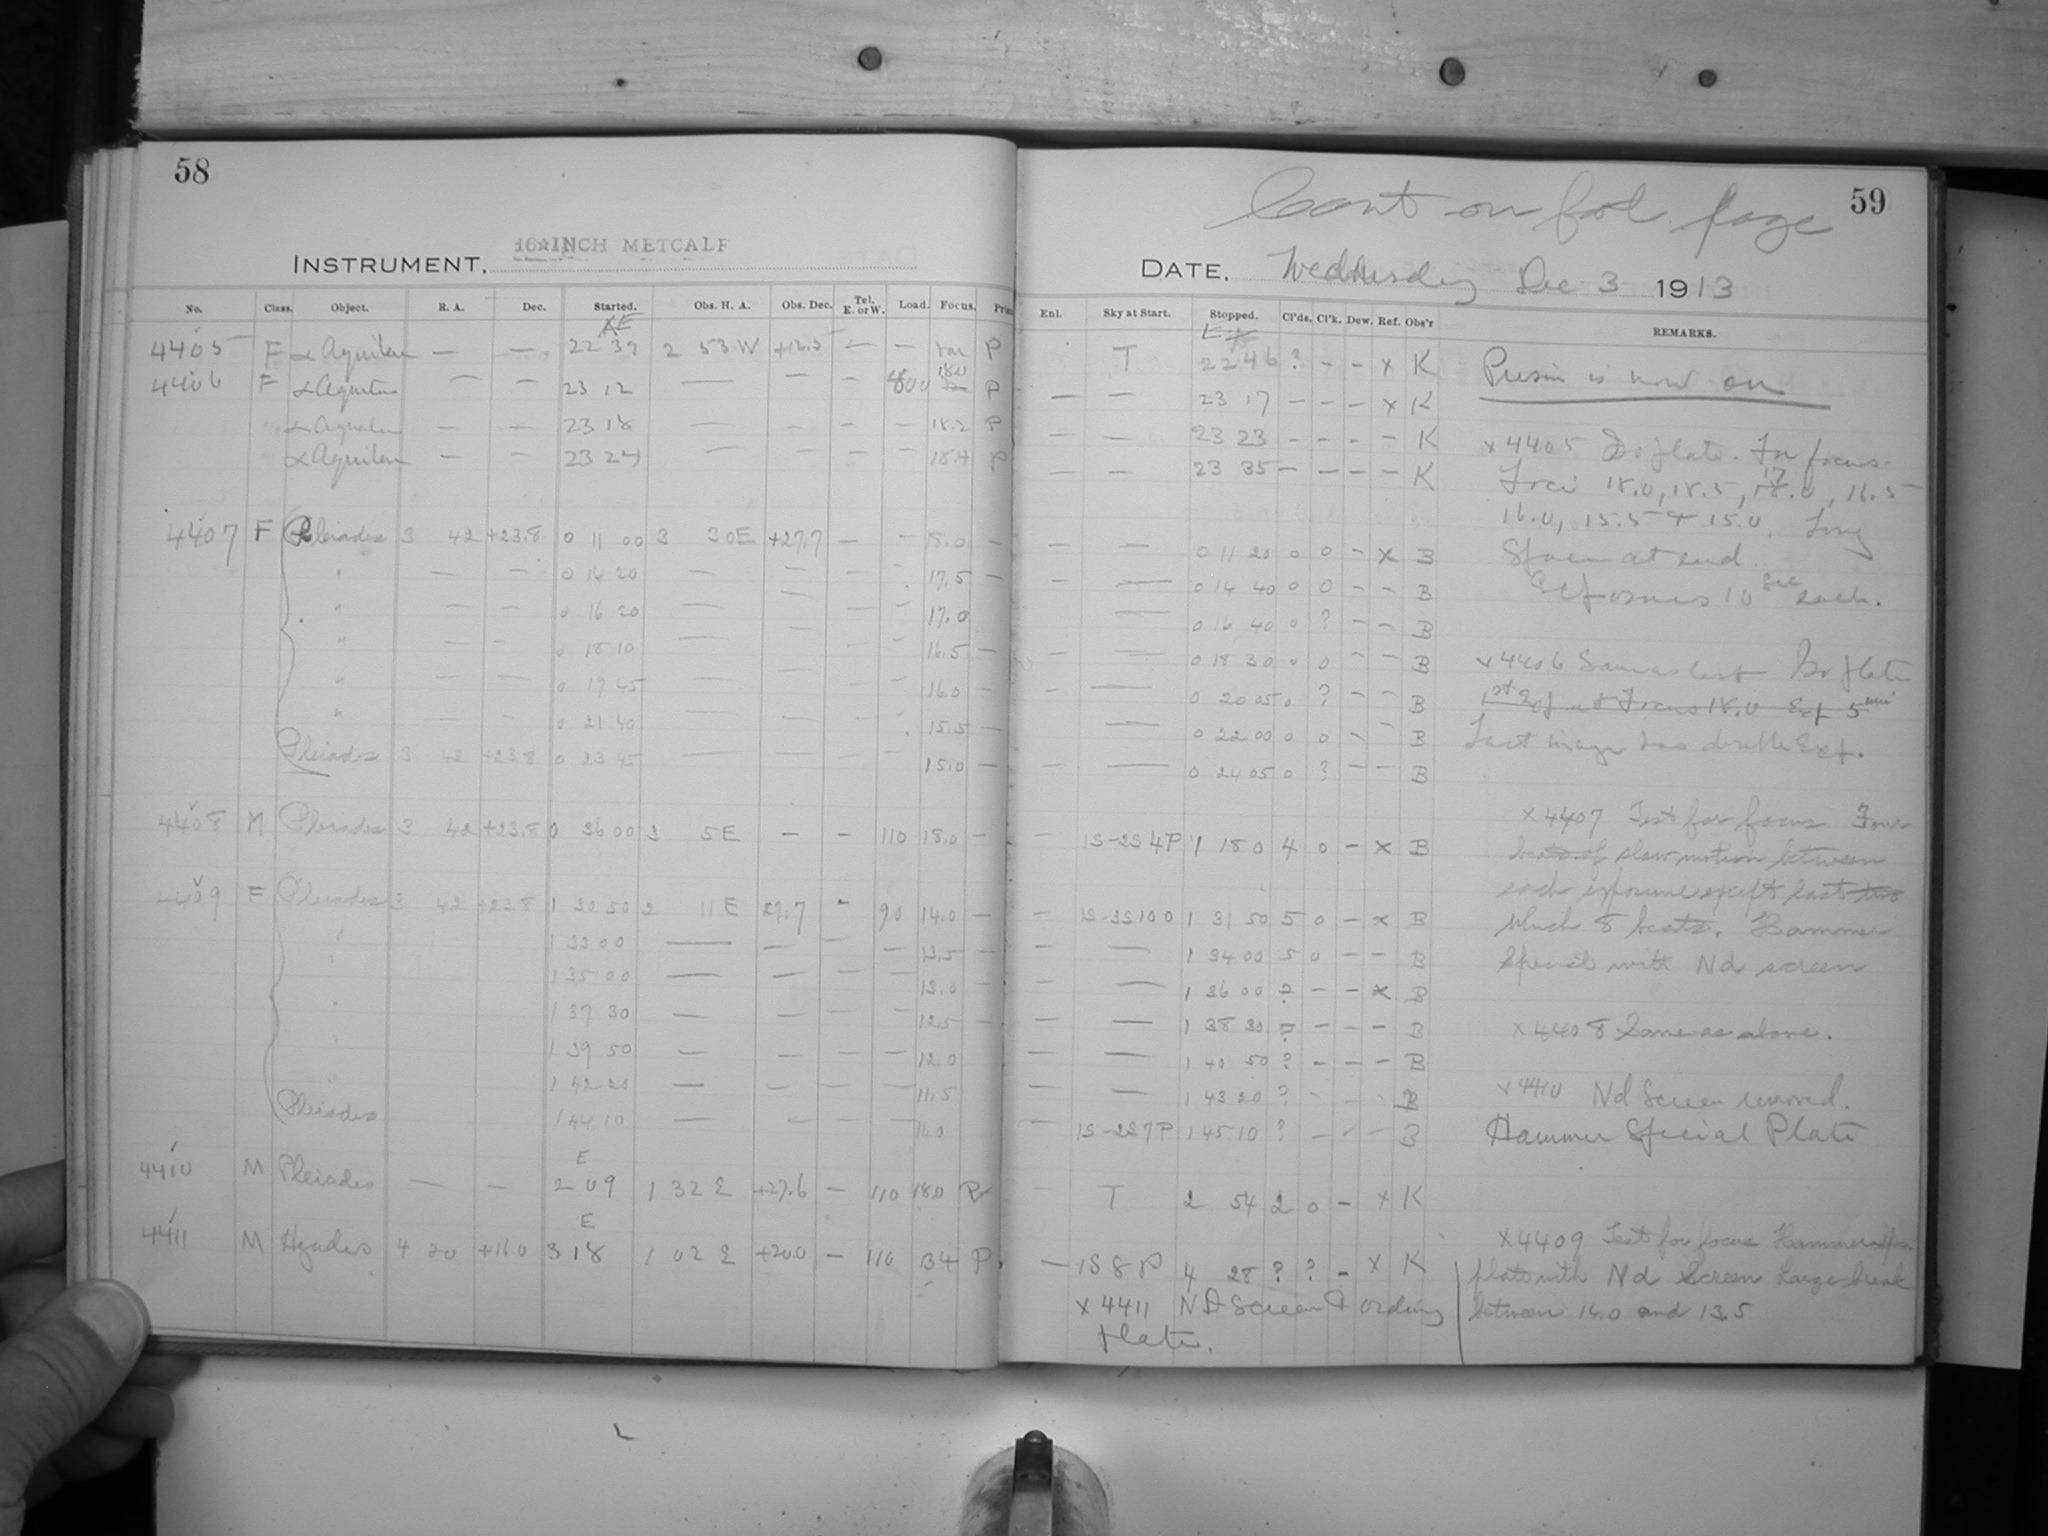 58
INSTRUMENT. 16 INCH METCALF
No. Class. Object. R. A. Dec. Started. Obs. H. A. Obs. Dec. Tel. E. or W. Load. Focus.
4405 F α Aquilae — — 22 39 2 53 W +12.5 — — var P
4406 F α Aquilae 23 12 — — — 18.0 P
α Aquilae — — 23 18 — — — — 18.2 P
α Aquilae — — 23 24 — — — — 18.4 P
4407 F Pleiades 3 42 +23.8 0 11 00 3 30E +27.7 — — 18.0 —
" — — 0 14 20 — — — — 17.5 —
" — — 0 16 20 — — — — 17.0
" — — 0 18 10 — — — — 16.5 —
" — — 0 19 45 — — — — 16.0 —
" — — 0 21 40 — — — 15.5 —
Pleiades 3 42 +23.8 0 23 45 — — — — 15.0 —
4408 M Pleiades 3 42 +23.8 0 36 00 3 5E — — 110 18.0 —
4409 F Pleiades 3 42 +23.8 1 30 50 2 11 E 27.7 - 90 14.0 —
" 1 33 00 — — — — 13.5 —
" 1 35 00 — — — — 13.0 —
" 1 37 30 — — — — 12.5 —
" 1 39 50 — — — — 12.0
" 1 42 20 — — — — 11.5
Pleiades 1 44 10 — — — — 11.0
E
4410 M Pleiades — — 2 09 1 32 E +27.6 — 110 18.0
E
4411 M Hyades 4 20 +16.0 3 18 1 02 E +20.0 — 110 13.4 P
59
Cont on fol. page
DATE. Wednesday Dec 3 1913
Enl. Sky at Start. Stopped. Cl'ds. Cl'k. Dew. Ref. Obs'r REMARKS.
T 22 46 ? - - x K
— — 23 17 - - - x K
— — 23 23 - - - - K
— — 23 35 - - - - K
— — 0 11 20 0 0 - x B
— — 0 14 40 0 0 - - B
— 0 16 40 0 ? - - B
— — 0 18 30 0 0 - - B
— — 0 20 05 0 ? - - B
— 0 22 00 0 0 - - B
— — 0 24 05 0 ? - - B
— 1S-2S 4P 1 18 0 4 0 - x B
— 1S-3S 10 0 1 31 50 5 0 - x B
— — 1 34 00 5 0 - - B
— — 1 36 00 ? - - x B
— — 1 38 30 ? - - - B
— — 1 40 50 ? - - - B
— — 1 43 20 ? - - - B
— 1S-2S 7P 1 45 10 ? - - - B
— T 2 54 2 0 - x K
— 1S 8 P 4 28 ? ? - x K
x 4411 ND Screen & ording
plate.
Prism is now on
x 4405 Do plate. For focus.
Foci 18.0, 18.5, 17.0, 16.5
16.0, 15.5 + 15.0. Long
Space at end.
Exposures 10 sec each.
x 4406 Same as last Do plate
1st Exp at Focus 18.0 Exp 5 min
Last image has double Exp.
x 4407 Test for focus Four
beats of slow motion between
each exposure except last two
which 8 beats. Hammer
Special with Nd screen
x 4408 Same as above.
x 4410 Nd Screen removed.
Hammer Special Plate
x 4409 Test for focus Hammer Spec.
plate with Nd Screen Large break
between 14.0 and 13.5